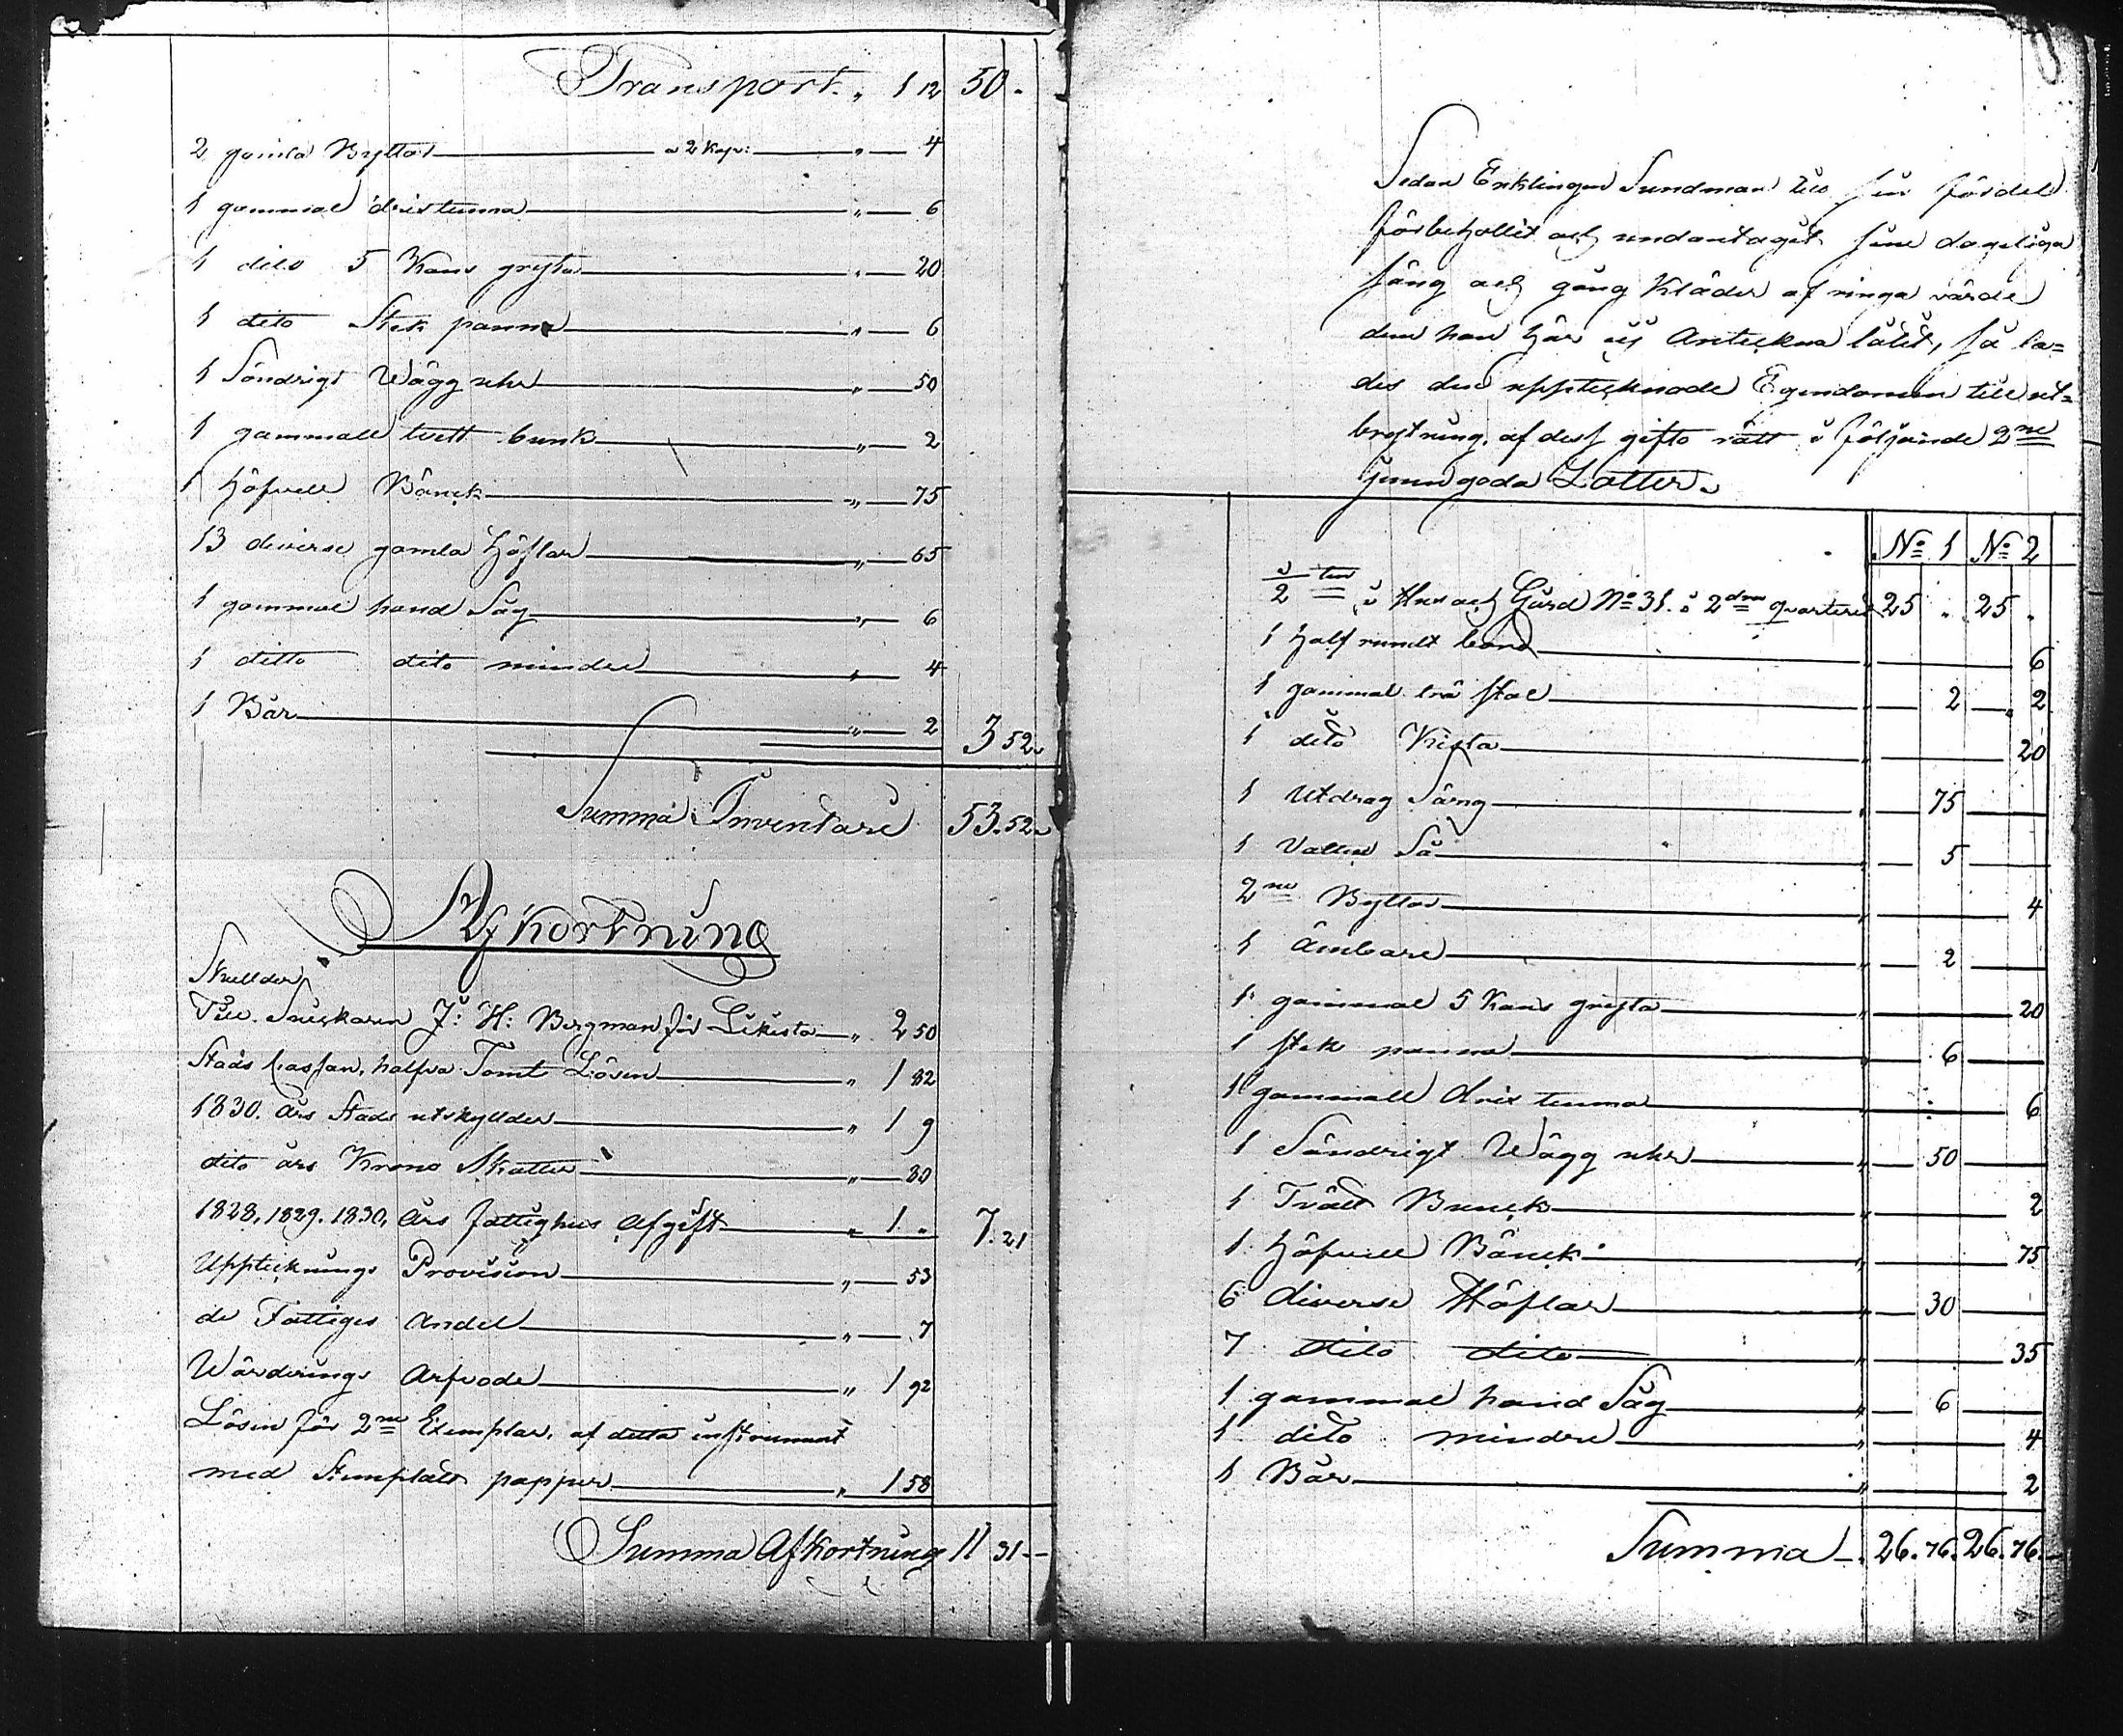 Transport „ 1 12 50 „
2 gamla Byttor a 2 Kop: „ 4
1 gammal drixtunna „ 6
1 dito 5 Kans gryta „ 20
1 dito Stek panna „ 6
1 Söndrigt Wägg uhr „ 50
1 gammall tvett bunk „ 2
1 Höfvell Bänck „ 75
13 diverse gamla Höflar „ 65
1 gammal hand Såg „ 6
1 ditto dito mindre „ 4
1 Bår „ 2 3 52 „
Summa Inventarii 53. 52 „
Afkortning
Skulder
Till Snickaren J: H: Bergman för Likista „ 2 50
Stads Cassan, halfva Tomt Lösen „ 1 82
1830. års Stads utskyllder „ 1 9
dito års Krono Skatter „ 80
1828, 1829. 1830, års fattighus afgift „ 1 „ 7. 21
Uppteknings Provision „ 53
de Fattiges Andel „ 7
Wärderings Arfvode „ 1 92
Lösen för 2ne Exemplar, af detta instrument
med Stempladt papper „ 1 58
Summa Afkortning 11 31 -
Sedan Enklingen Sundman till sin fördel
förbehållit och undantagit sine dageliga
säng och gång Kläder af ringa värde
dem han här ej Anteckna låtit, så la=
des den upptecknade Egendomen till ut=
brytning, af dess gifto rätt i följande 2ne
jemngoda Lotter.
No 1 No 2
1/2 ten i Hus och Gård No 31. i 2dra quarteret 25 „ 25 „
1 half rundt bord „ 6
1 gammal trä stol „ 2 2
1 dito Kista „ 20
1 Utdrag Säng „ 75
1 Vatten Så „ 5
2ne Byttor „ 4
1 ämbare „ 2
1 gammal 5 Kans gryta „ 20
1 stek panna „ 6
1 gammall drix tunna „ 6
1 Söndrigt Wägg uhr „ 50
1 Tvätt Bunck „ 2
1 Höfvell Bänck „ 75
6 diverse Höflar „ 30
7 dito dito „ 35
1 gammal hand Såg „ 6
1 dito mindre „ 4
1 Bår „ 2
Summa 26. 76. 26. 76.